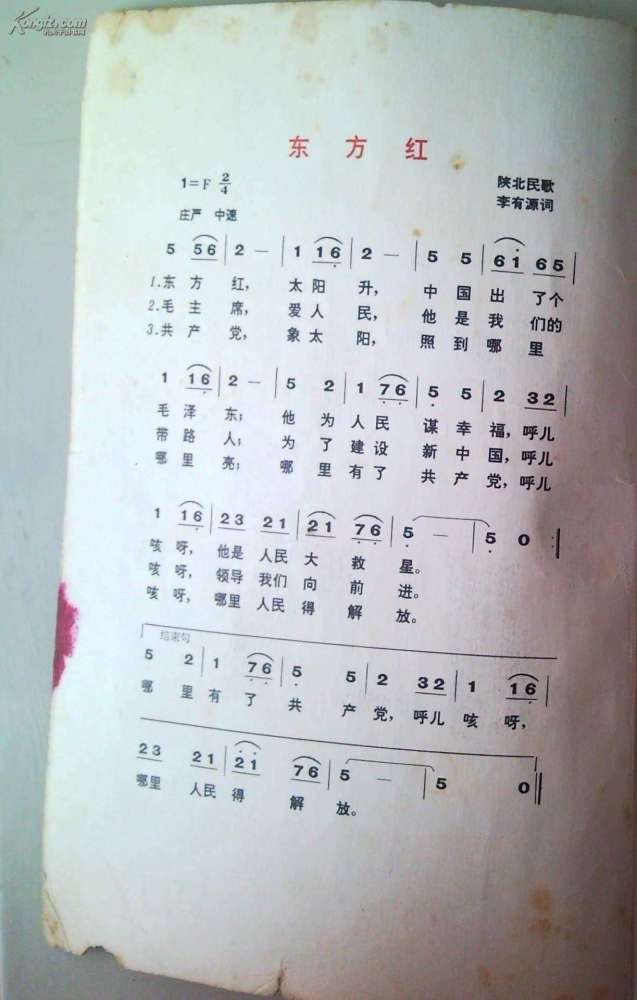 Kongfz.com
孔夫子旧书网
东方红
1=F 2/4
陕北民歌
庄严 中速
李有源词
5 56 | 2 — | 1 16 | 2 — | 5 5 | 61 65 |
1.东方红，太阳升，中国出了个
2.毛主席，爱人民，他是我们的
3.共产党，象太阳，照到哪里
1 16 | 2 — | 5 2 | 1 76 | 5 5 | 2 32 |
毛泽东；他为人民谋幸福，呼儿
带路人；为了建设新中国，呼儿
哪里亮；哪里有了共产党，呼儿
1 16 | 23 21 | 21 76 | 5 — | 5 0 :|
咳呀，他是人民大救星。
咳呀，领导我们向前进。
咳呀，哪里人民得解放。
结束句
5 2 | 1 76 | 5 5 | 2 32 | 1 16 |
哪里有了共产党，呼儿咳呀，
23 21 | 21 76 | 5 — | 5 0 ‖
哪里人民得解放。